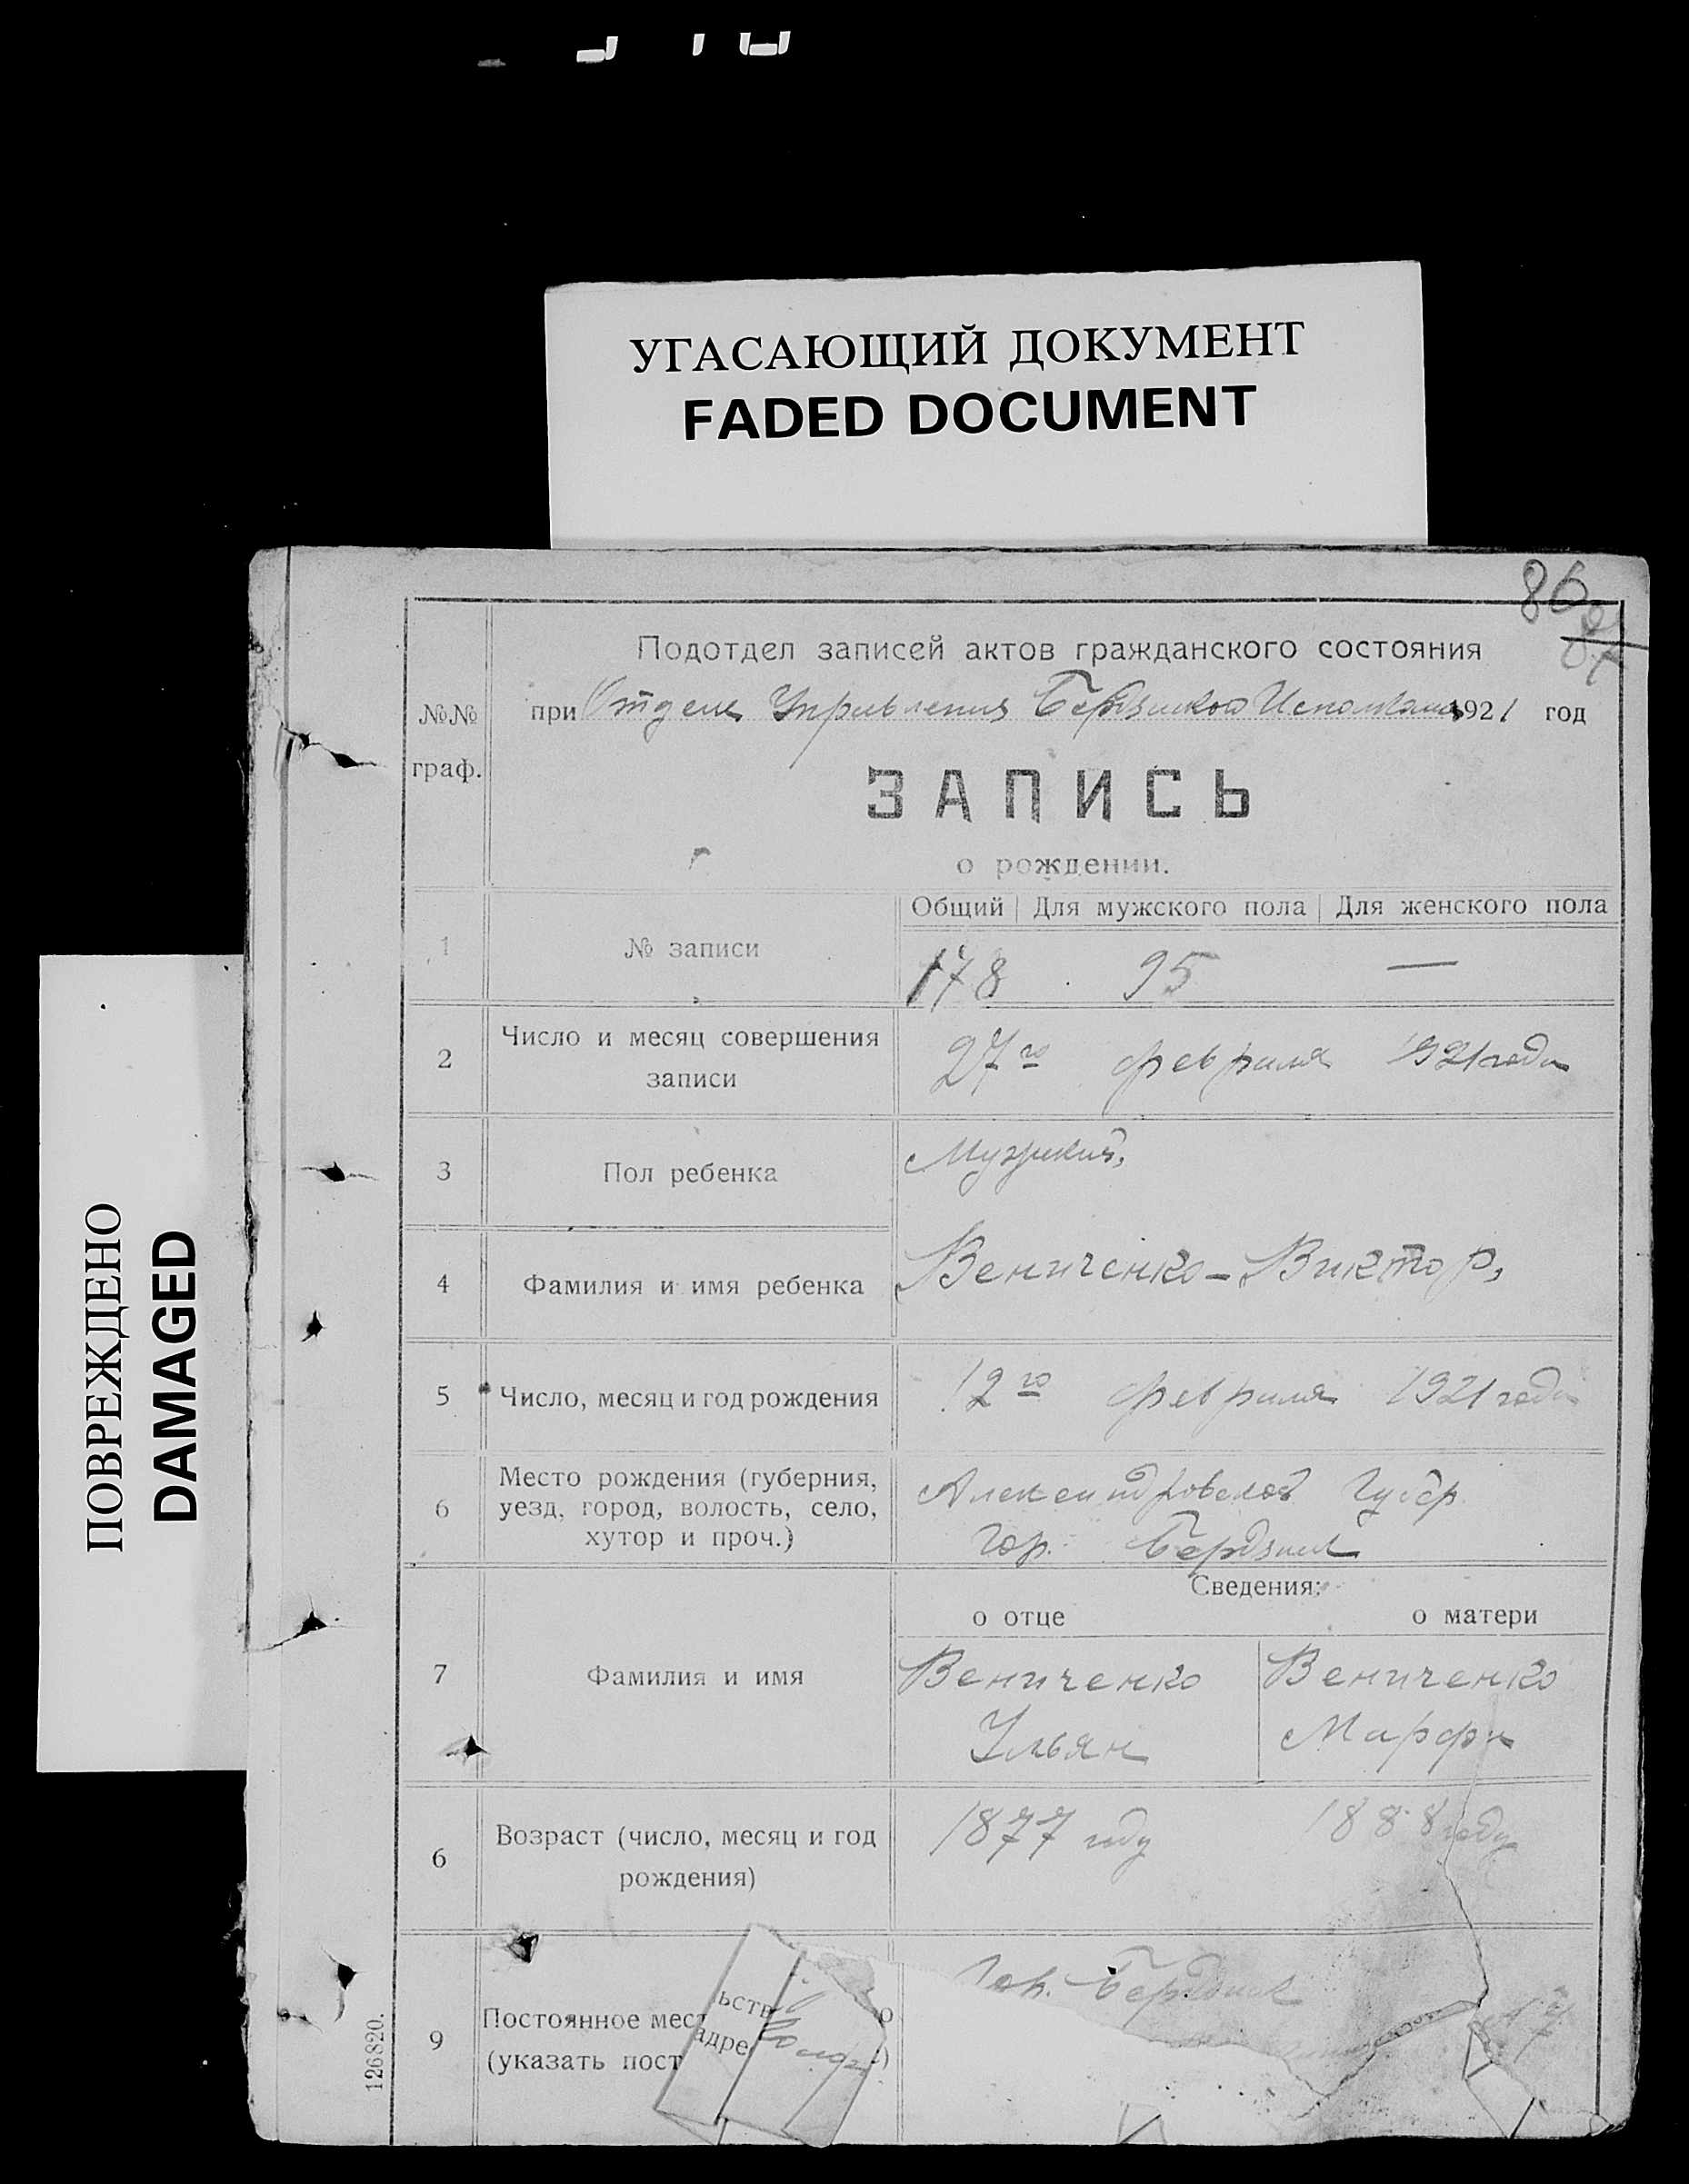 УГАСАЮЩИЙ ДОКУМЕНТ
FADED DOCUMENT
ПОВРЕЖДЕНО
DAMAGED
86
Подотдел записей актов гражданского состояния
№№ граф.
при Отделе Управления Бердянского Исполкома 1921 год
ЗАПИСЬ
о рождении.
Общий Для мужского пола Для женского пола
1 № записи 178 95 —
2 Число и месяц совершения записи 27го февраля 1921 года
3 Пол ребенка Мужский,
4 Фамилия и имя ребенка Вениченко - Виктор,
5 Число, месяц и год рождения 12го февраля 1921 года
6 Место рождения (губерния,
уезд, город, волость, село,
хутор и проч.)
Александровской Губер.
гор. Бердянск
Сведения:
о отце о матери
7 Фамилия и имя
Вениченко Вениченко
Ульян Марфа
6 Возраст (число, месяц и год
рождения)
1877 году 1888 году
9 Постоянное мес
ьств
(указать пост
адре
Гор. Бердянск
126820.